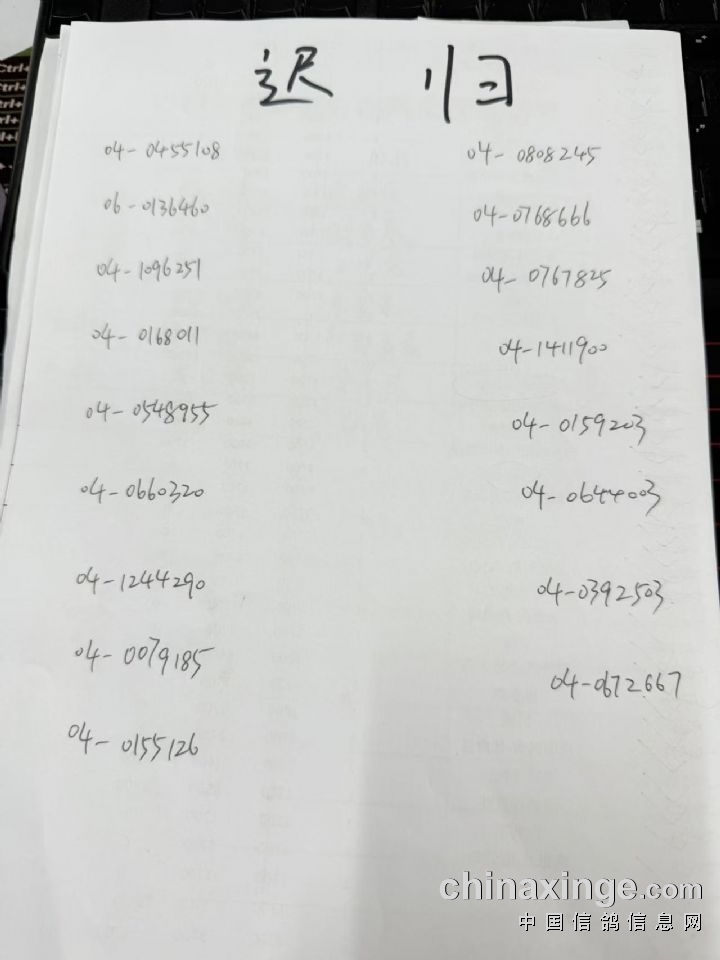 迟 归
04-0455108
06-0136460
04-1096251
04-0168011
04-0548955
04-0660320
04-1244290
04-0079185
04-0155126
04-0808245
04-0768666
04-0767825
04-1411900
04-0159203
04-0644003
04-0392503
04-0672667
chinaxinge.com
中国信鸽信息网